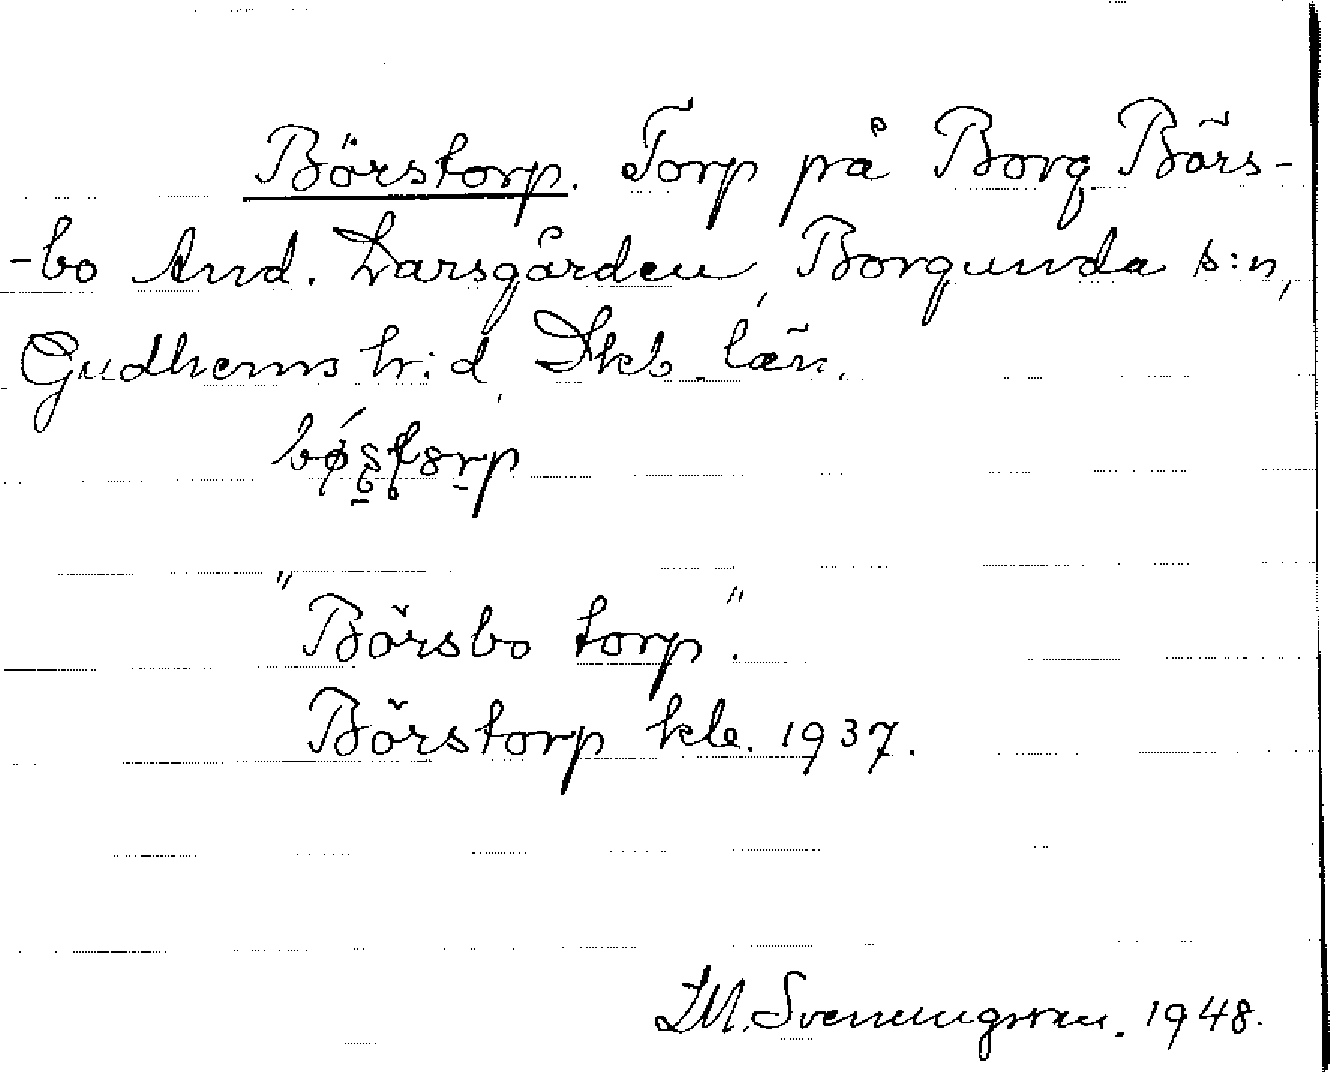 Börstorp. Torp på Borg Börs-
-bo And. Larsgården, Borgunda s:n,
Gudhems h:d, Skb. län.
"Börsbo torp".
Börstorp kla. 1937.
L.M. Svenungsson. 1948.